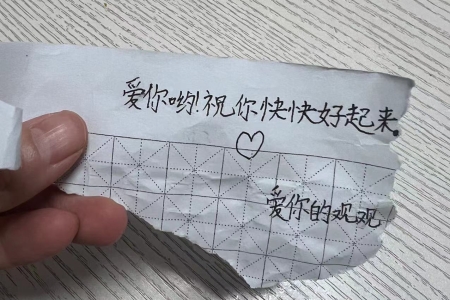 爱你哟!祝你快快好起来。
爱你的观观